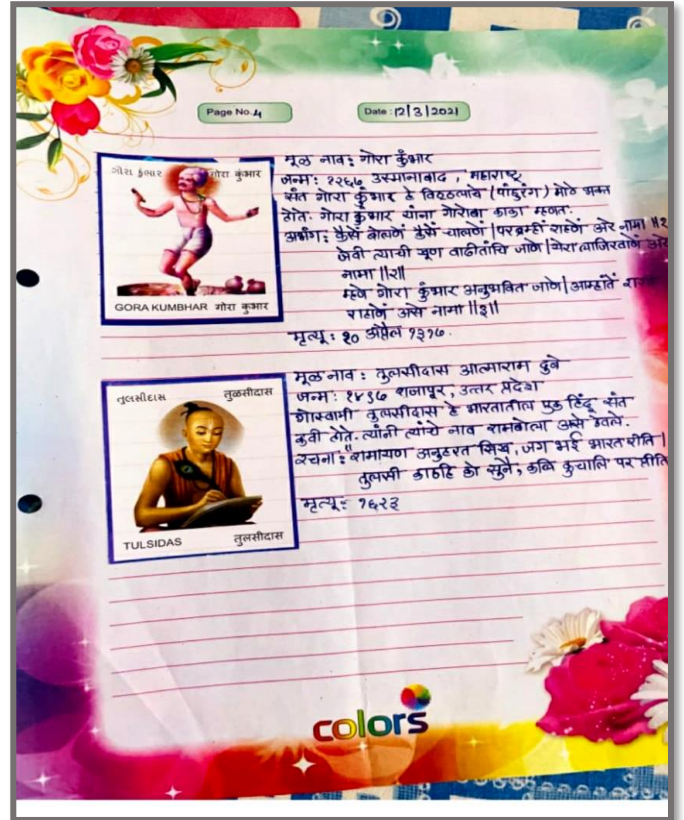 Page No. 4
Date : 12/3/2021
ગોરા કુંભાર गोरा कुंभार
GORA KUMBHAR गोरा कुंभार
मूळ नाव : गोरा कुंभार
जन्म : १२६७ उस्मानाबाद , महाराष्ट्र
संत गोरा कुंभार हे विठ्ठलाचे (पांडुरंग) मोठे भक्त
होते. गोरा कुंभार यांना गोरोबा काका म्हणत.
अभंग : कैसें बोलणें कैसें चालणें | परब्रम्हीं राहणें अरे नामा ॥१
जेवी त्याची खूण वाढीतांचि जाणे | अरे
नामा ॥२॥
म्हणे गोरा कुंभार अनुभवित जाणे | आम्हांतें
राहाणें असे नामा ॥३॥
मृत्यू : २० अप्रैल १३१७.
તુલસીદાસ तुळसीदास
TULSIDAS तुलसीदास
मूळ नाव : तुलसीदास आत्माराम दुबे
जन्म : १४९७ राजापूर , उत्तर प्रदेश
गोस्वामी तुलसीदास हे भारतातील एक हिंदू संत
कवी होते. त्यांनी त्यांचे नाव रामबोला असे ठेवले.
रचना : "रामायण अनुहरत सिख, जग भई भारत रीति |
तुलसी काठहि को सुने, कलि कुचालि पर प्रीति
मृत्यू : १६२३
colors